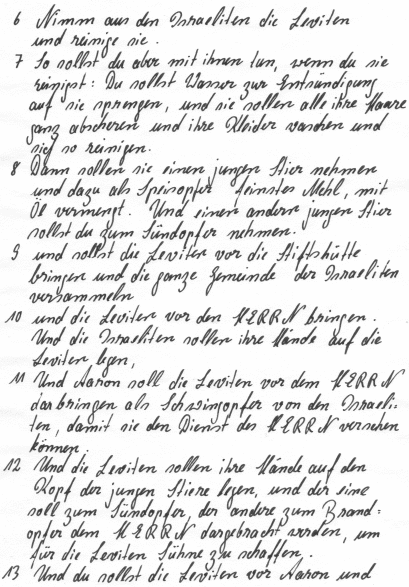 6 Nimm aus den Israeliten die Leviten
und reinige sie.
7 So sollst du aber mit ihnen tun, wenn du sie
reinigst: Du sollst Wasser zur Entsündigung
auf sie sprengen, und sie sollen alle ihre Haare
ganz abscheren und ihre Kleider waschen und
sich so reinigen.
8 Dann sollen sie einen jungen Stier nehmen
und dazu als Speisopfer feinstes Mehl, mit
Öl vermengt. Und einen andern jungen Stier
sollst du zum Sündopfer nehmen.
9 und sollst die Leviten vor die Stiftshütte
bringen und die ganze Gemeinde der Israeliten
versammeln
10 und die Leviten vor den HERRN bringen.
Und die Israeliten sollen ihre Hände auf die
Leviten legen,
11 Und Aaron soll die Leviten vor dem HERRN
darbringen als Schwingopfer von den Israeli-
ten, damit sie den Dienst des HERRN versehen
können.
12 Und die Leviten sollen ihre Hände auf den
Kopf der jungen Stiere legen, und der eine
soll zum Sündopfer, der andere zum Brand-
opfer dem HERRN dargebracht werden, um
für die Leviten Sühne zu schaffen.
13 Und du sollst die Leviten vor Aaron und